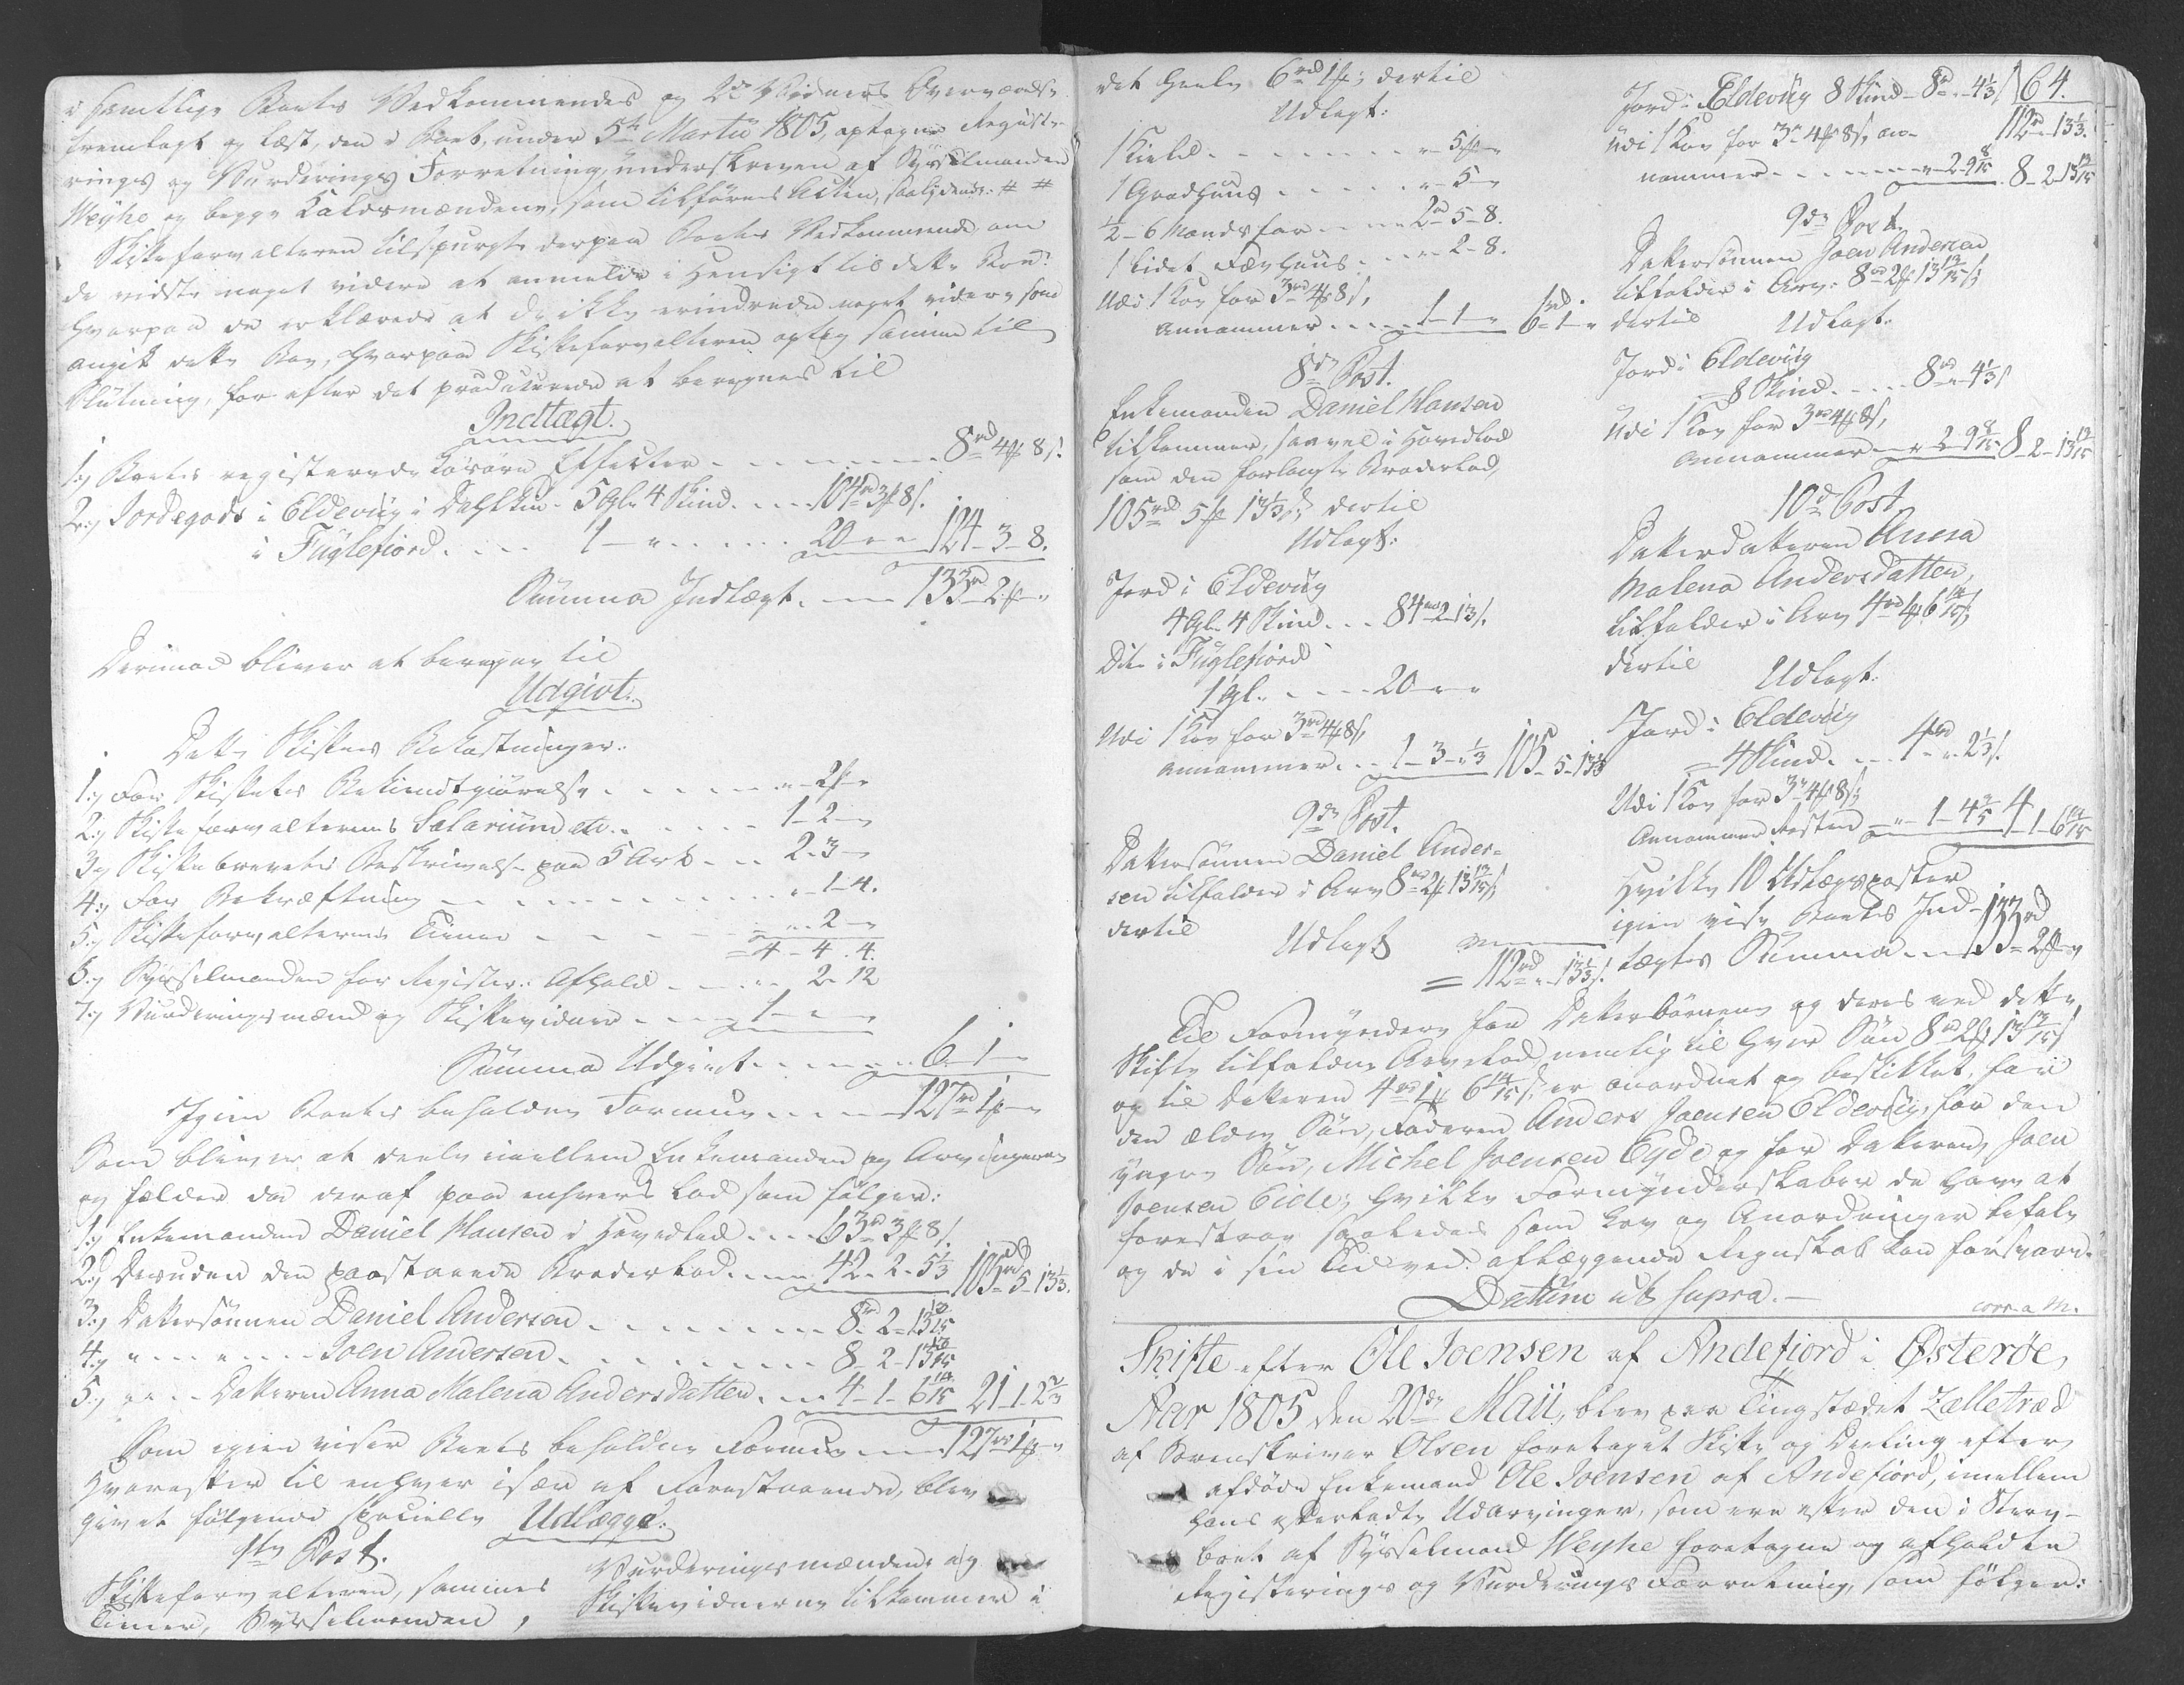 i samtlige Boets Vedkommendes og 2de Vidners Overværelse
fremlagt og læst, den i Boet, under 5te Martii 1805, optagne Registe-
rings og Vurderings Forretning, underskreven af Sysselmanden
Weyhe og begge Lausmændene, som tilføres Acten, saalydende: # #
Skifteforvalteren tilspurgte derpaa Boets Vedkommende om
de vidste noget videre at anmelde i Hensigt til dette Boe?
hvorpaa de erklærede at de ikke erindrede noget videre som
angik dette Boe, hvorpaa Skifteforvalteren optog samme til
Slutning, for efter det producerede at beregnes til
Indtægt.
1.) Boets registerede Løsøre Effecter - - - 8rd 4ß 8s.
2.) Jordegods i Eldevig i Dahlkin 5 Gl. 4 Skind - - - 104rd 3ß 8s.
i Fuglefiord - - - 1 - " - - - 20 " " 124 - 3 - 8.
Summa Indtægt - - - 133rd 2ß "
Derimod bliver at beregne til
Udgivt.
Dette Skiftes Bekostninger.
1.) For Skiftets Bekiendtgiørelse - - - " - 2ß "
2.) Skifteforvalterens Salarium etc. - - - 1 - 2 - "
3.) Skiftebrevets Beskrivelse paa 5 Ark - - - 2 - 3 - "
4.) For Bekræftning - - - " - 1 - 4.
5.) Skifteforvalterens Tiener - - - " - 2 - "
4 - 4 - 4.
6.) Sysselmanden for Register: Afhold - - - " 2 - 12
7.) Vurderingsmænd og Skiftevidner - - - 1 - " - "
Summa Udgivt - - - 6 - 1 - "
Igien Boets beholdne Formue - - - 127rd 1ß "
Som bliver at deele imellem Enkemanden og Arvingerne
og falder da deraf paa enhvers Lod som følger:
1.) Enkemanden Daniel Hansen i Hovedlod - - - 63rd 3ß 8s.
2.) Desuden den paastaaende Broderlod - - - 42 - 2 - 5 1/3 105rd 5 - 13 1/3.
3.) Dattersønnen Daniel Andersen - - - 8rd 2 - 13 13/15
4.) " - - " - - Joen Andersen - - - 8 - 2 - 13 13/15
5.) " " - - Datteren Anna Malena Andersdatter - - - 4 - 1 - 6 14/15 21 - 1 - 2 2/3
Som igien viser Boets beholdne Formue - - - 127rd 1ß "
Hvorefter til enhver især af Forestaaende, blev
givet følgende specielle Udlægge:
1te Post.
Skifteforvalteren, sammes
Tiener, Sysselmanden,
Vurderingsmændene og
Skiftevidnerne tilkommer i
det heele 6rd 1ß; dertil
Udlagt:
1 Kield - - - " - 5ß "
1 Gradhuus - - - " - 5 - "
1/2 - 6 Mandsfar - - - 2rd 5 - 8.
1 lidet Fæehuus - - - " 2 - 8.
Udi 1 Koe for 3rd 4ß 8s,
annammer - - - 1 - 1 - " 6rd 1 - "
8de Post.
Enkemanden Daniel Hansen
tilkommer, saavel i Hovedlod
som den forlangte Broderlod,
105rd 5ß 13 1/3s; dertil
Udlagt:
Jord i Eldevig
4 Gl. 4 Skind - - - 84rd 2 - 13s.
Dito i Fuglefiord
1 Gl. - - - 20 - " "
Udi 1 Koe for 3rd 4ß 8s,
annammer - - - 1 - 3 - " 1/3 105 - 5 - 13 1/3
9de Post.
Dattersønnen Daniel Ander-
sen tilfalder i Arv 8rd 2ß 13 13/15s;
dertil
Udlagt
= 112rd " 13 1/3s.
64.
Jord i Eldevig 8 Skind - 8rd " - 4 1/3s
112rd " 13 1/3.
Udi 1 Koe for 3rd 4ß 8s, an-
nammer - - - " 2 - 9 8/15 8 - 2 - 13 13/15
9de Post.
Dattersønnen Joen Andersen
tilfalder i Arv: 8rd 2ß 13 13/15s;
dertil Udlagt:
Jord i Eldevig
8 Skind - - - 8rd " - 4 1/3s
Udi 1 Koe for 3rd 4ß 8s,
annammer - " 2 - 9 8/15 8 - 2 - 13 13/15
10de Post
Datterdatteren Anna
Malena Andersdatter,
tilfalder i Arv 4rd 1ß 6 14/15s;
dertil Udlagt:
Jord i Eldevig
4 Skind - - - 4rd " - 2 1/3s.
Udi 1 Koe for 3rd 4ß 8s;
Annammer Resten - " - 1 - 4 3/5 4 - 1 - 6 14/15
Hvilke 10 Udlægsposter
igien viser Boets Ind-
tægts Summa - - - 133rd 2ß "
Til Formyndere for Datterbørnene og deres ved dette
Skifte tilfaldne Arvelod, nemlig til hver Søn 8rd 2ß 13 13/15s
og til Datteren 4rd 1ß 6 14/15s, er anordnet og beskikket, for
den ældre Søn, Faderen Anders Joensen Eldevig, for den
yngre Søn, Michel Joensen Eyde og for Datteren, Joen
Joensen Eide; hvilke Formynderskaber de have at
forestaae saaledes som Lov og Anordninger befale
og de i sin Tid ved aflæggende Regnskab kan forsvare.
Datum ut supra. -
corr. a M.
Skifte efter Ole Joensen af Andefiord i Østerøe,
Aar 1805 den 20de Maii, blev paa Tingstædet Zelletræd
af Sorenskriver Olsen foretaget Skifte og Deeling efter
afdøde Enkemand Ole Joensen af Andefiord, imellem
hans efterladte Udarvinger, som ere efter den i Sterv-
boet af Sysselmand Weyhe foretagne og afholdte
Registerings og Vurderings Forretning, som følger: